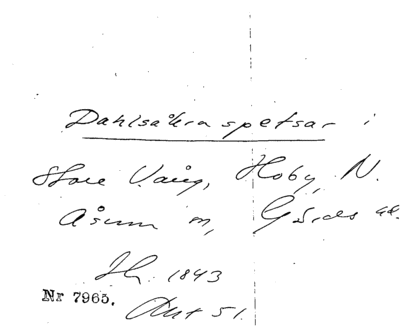 Dahlsåkra spetsar i
Store Vång, Hoby, N.
Åsum m, Gärds hd.
1843
Nr 7965.
Akt 51.